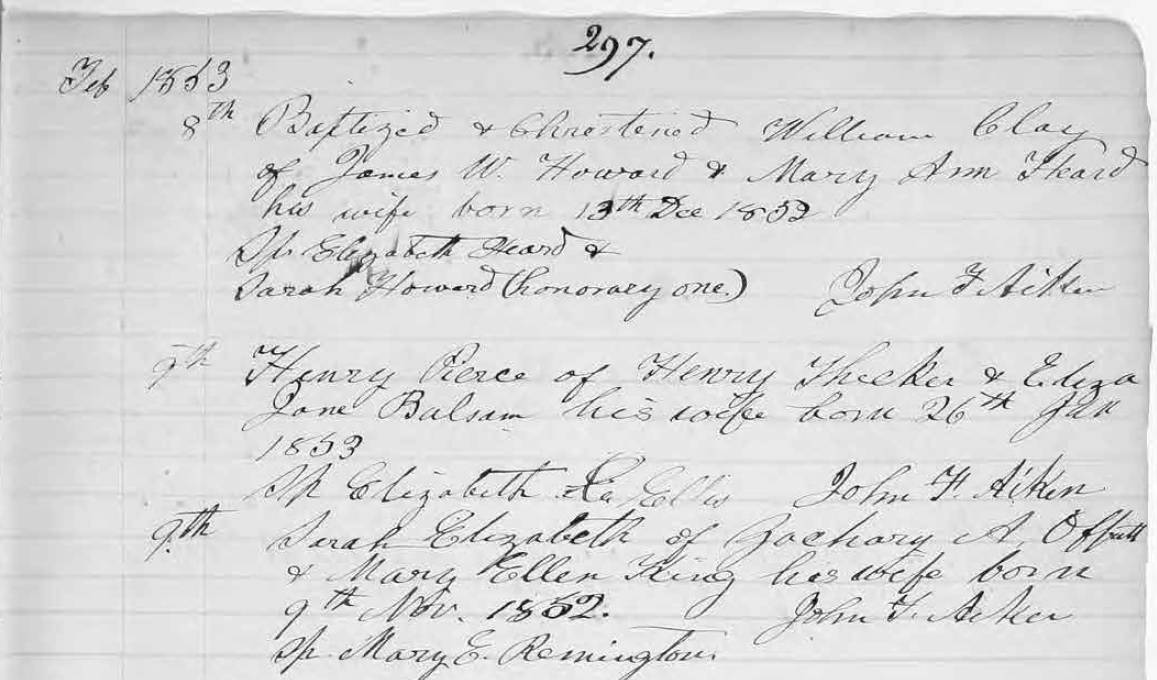 297.
Feb 1853
8th Baptized & Christened William Clay
of James W. Howard & Mary Ann Heard
his wife born 13th Dec 1852
Sp. Elizabeth Heard &
Sarah Howard (honorary one.) John F. Aiken
9th Henry Pierce of Henry Thecker & Eliza
Jane Balsam his wife born 26th Jan
1853
Sp Elizabeth Ellis John F. Aiken
9th Sarah Elizabeth of Zachary A. Offutt
& Mary Ellen King his wife born
9th Nov. 1852. John F. Aiken
Sp. Mary E. Remington.